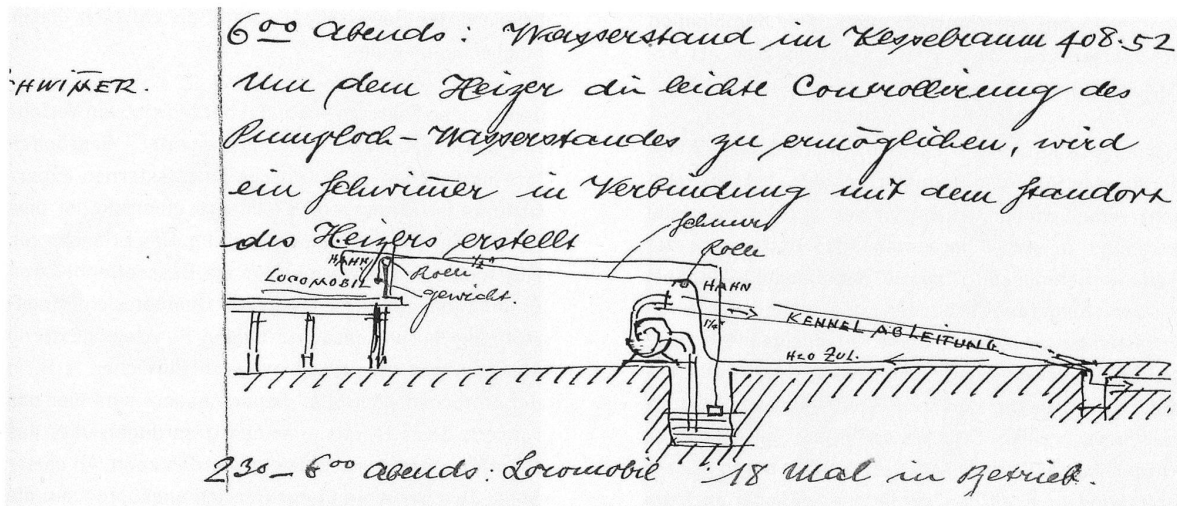 6⁰⁰ Abends: Wasserstand im Kesselraum 408.52
SCHWIM̄ER.
Um dem Heizer die leichte Controllierung des
Pumploch-Wasserstandes zu ermöglichen, wird
ein Schwim̄er in Verbindung mit dem Standort
des Heizers erstellt
Schnur
Rolle
HAHN
½"
Rolle
gewicht.
LOCOMOBIL
HAHN
1¼"
KENNEL ABLEITUNG
H2O ZUL.
2 30 – 6⁰⁰ abends: Locomobil 18 Mal in Betrieb.